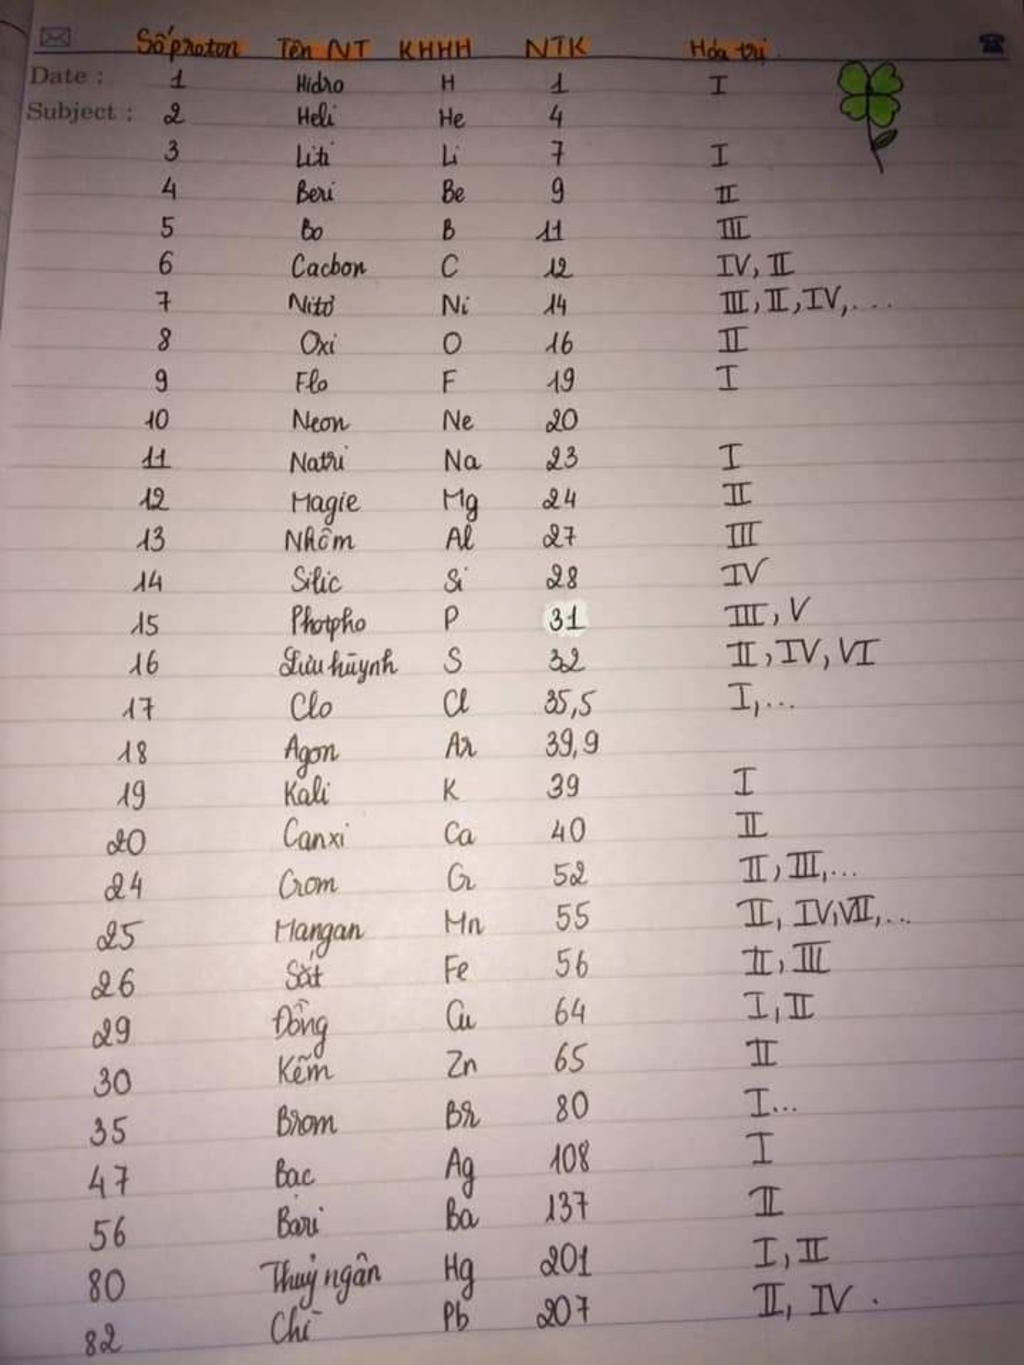 Số proton Tên NT KHHH NTK Hóa trị
Date : 1 Hidro H 1 I
Subject : 2 Heli He 4
3 Liti Li 7 I
4 Beri Be 9 II
5 Bo B 11 III
6 Cacbon C 12 IV, II
7 Nitơ Ni 14 III, II, IV, ...
8 Oxi O 16 II
9 Flo F 19 I
10 Neon Ne 20
11 Natri Na 23 I
12 Magie Mg 24 II
13 Nhôm Al 27 III
14 Silic Si 28 IV
15 Photpho P 31 III, V
16 Lưu huỳnh S 32 II, IV, VI
17 Clo Cl 35,5 I, ...
18 Agon Ar 39,9
19 Kali K 39 I
20 Canxi Ca 40 II
24 Crom Cr 52 II, III, ...
25 Mangan Mn 55 II, IV, VII, ...
26 Sắt Fe 56 II, III
29 Đồng Cu 64 I, II
30 Kẽm Zn 65 II
35 Brom Br 80 I...
47 Bạc Ag 108 I
56 Bari Ba 137 II
80 Thuỷ ngân Hg 201 I, II
82 Chì Pb 207 II, IV .